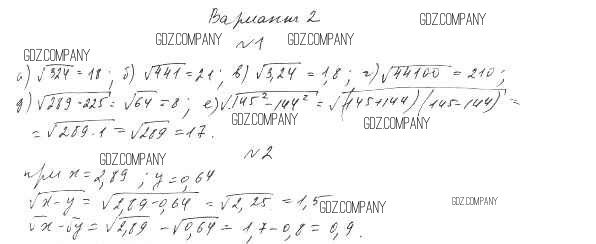 Вариант 2
GDZ.COMPANY
GDZ.COMPANY GDZ.COMPANY
№1
GDZ.COMPANY
а) √324 = 18; б) √441 = 21; в) √3,24 = 1,8; г) √44100 = 210;
д) √289-225 = √64 = 8; е) √145²-144² = √(145+144)(145-144) =
GDZ.COMPANY GDZ.COMPANY
= √289·1 = √289 = 17.
№2
GDZ.COMPANY
при x = 2,89; y = 0,64
√x-y = √2,89-0,64 = √2,25 = 1,5
GDZ.COMPANY GDZ.COMPANY
√x-√y = √2,89 - √0,64 = 1,7-0,8 = 0,9.